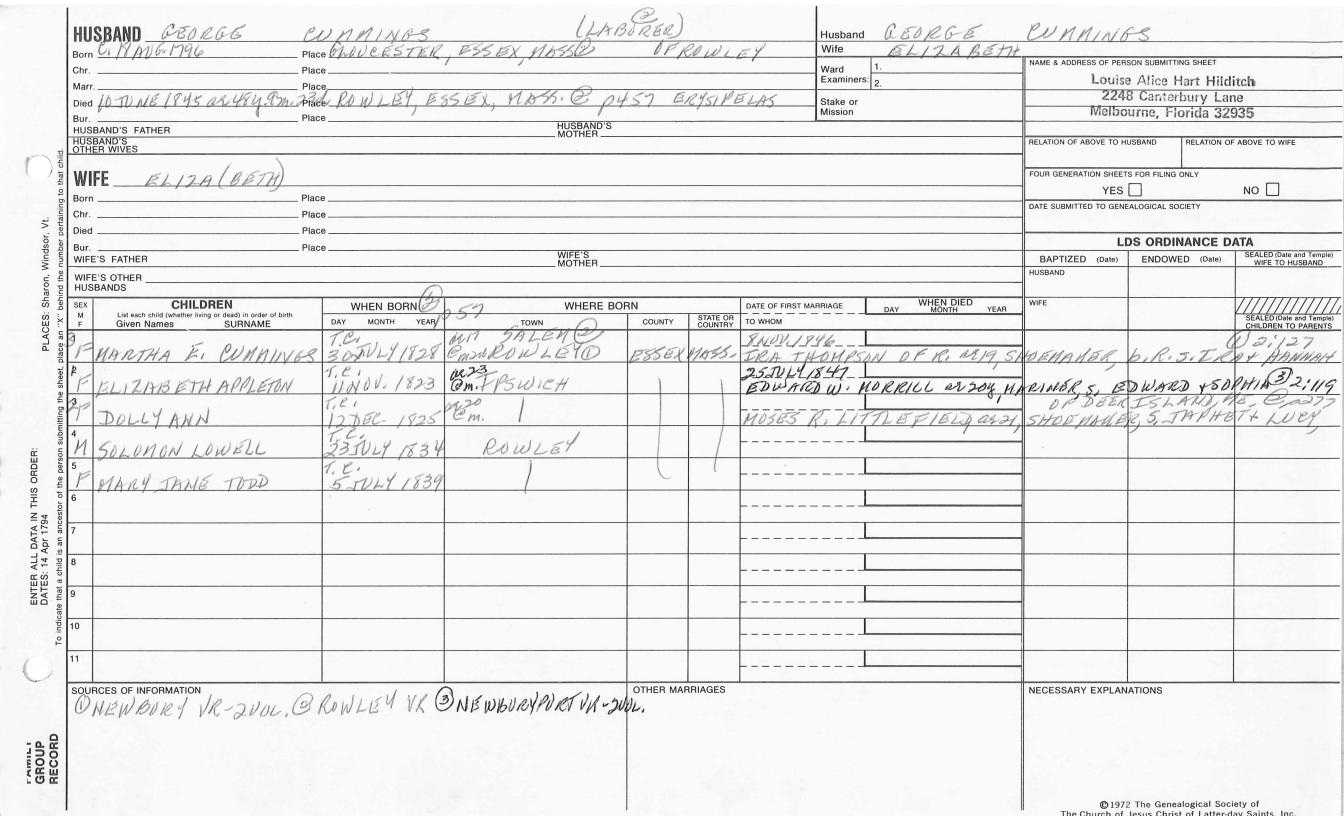 HUSBAND GEORGE CUMMINGS (LABORER) ②
Born C. 1 AUG 1796 Place GLOUCESTER, ESSEX, MASS② OF ROWLEY
Chr. Place
Marr. Place
Died 10 JUNE 1845 Place ROWLEY, ESSEX, MASS. ② p457 ERYSIPELAS
Bur. Place
HUSBAND'S FATHER HUSBAND'S MOTHER
HUSBAND'S OTHER WIVES
Husband GEORGE CUMMINGS
Wife ELIZABETH
Ward Examiners: 1.
2.
Stake or Mission
NAME & ADDRESS OF PERSON SUBMITTING SHEET
Louise Alice Hart Hilditch
2248 Canterbury Lane
Melbourne, Florida 32935
RELATION OF ABOVE TO HUSBAND RELATION OF ABOVE TO WIFE
FOUR GENERATION SHEETS FOR FILING ONLY
YES NO
DATE SUBMITTED TO GENEALOGICAL SOCIETY
WIFE ELIZA(BETH)
Born Place
Chr. Place
Died Place
Bur. Place
WIFE'S FATHER WIFE'S MOTHER
WIFE'S OTHER HUSBANDS
LDS ORDINANCE DATA
BAPTIZED (Date) ENDOWED (Date) SEALED (Date and Temple) WIFE TO HUSBAND
HUSBAND
WIFE
SEALED (Date and Temple) CHILDREN TO PARENTS
SEX M F
CHILDREN
List each child (whether living or dead) in order of birth
Given Names SURNAME
WHEN BORN
DAY MONTH YEAR
p57
WHERE BORN
TOWN COUNTY STATE OR COUNTRY
DATE OF FIRST MARRIAGE
TO WHOM
WHEN DIED
DAY MONTH YEAR
T.C. SALEM② 8 NOV. 1846 ① 2:127
F MARTHA E. CUMMINGS 30 JULY 1828 ROWLEY① ESSEX MASS. IRA THOMPSON OF R. ae 19, SHOEMAKER, b. R. S. IRA + HANNAH
T.C. ae 23 25 JULY 1847
F ELIZABETH APPLETON 11 NOV. 1823 @m. IPSWICH EDWARD W. MORRILL ae 20y, MARINER, S. EDWARD + SOPHIA③ 2:119
OF DEER ISLAND, ME. @ p277
3 T.C. ae 20
F DOLLY ANN 12 DEC 1825 @m. MOSES R. LITTLEFIELD, ae 21, SHOEMAKER, S. JAPHET + LUCY,
4 T.C.
M SOLOMON LOWELL 23 JULY 1834 ROWLEY
5 T.C.
F MARY JANE TODD 5 JULY 1839
6
7
8
9
10
11
SOURCES OF INFORMATION
① NEWBURY VR-2VOL. ② ROWLEY VR ③ NEWBURYPORT VR-2VOL.
OTHER MARRIAGES
NECESSARY EXPLANATIONS
©1972 The Genealogical Society of
The Church of Jesus Christ of Latter-day Saints, Inc.
PLACES: Sharon, Windsor, Vt.
ENTER ALL DATA IN THIS ORDER:
DATES: 14 Apr 1794
To indicate that a child is an ancestor of the person submitting the sheet, place an "X" behind the number pertaining to that child.
FAMILY GROUP RECORD